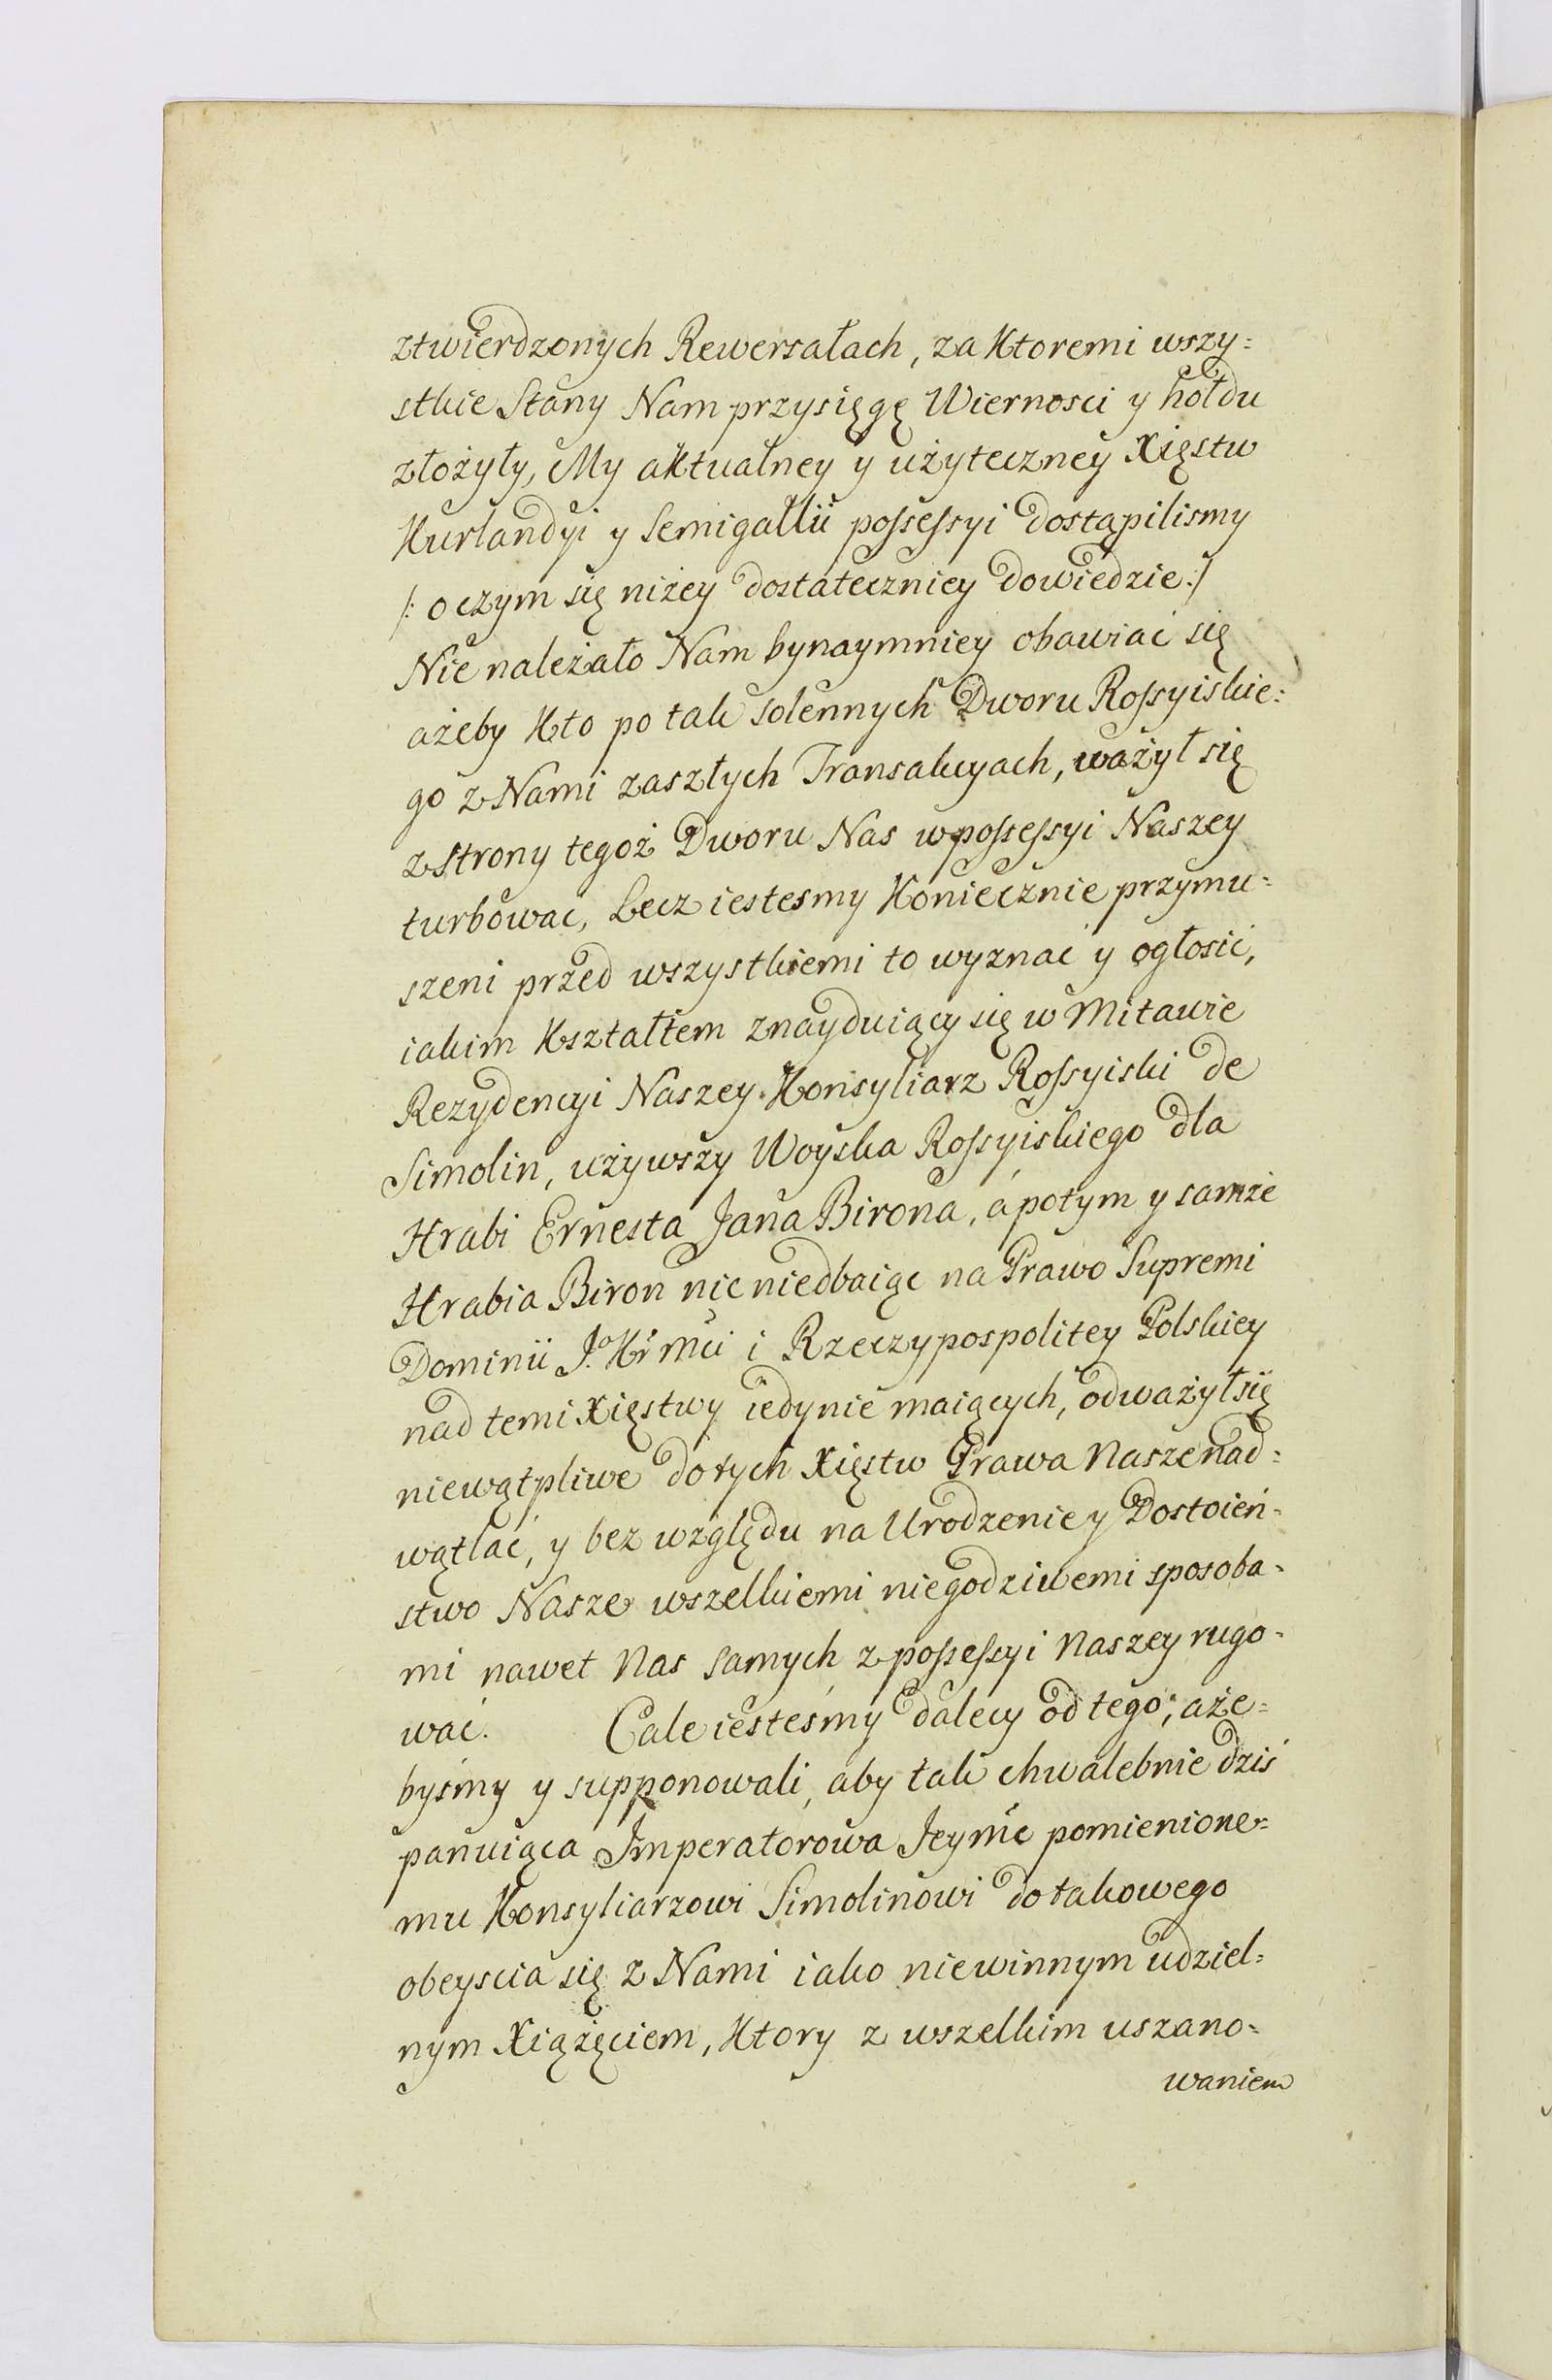 ztwierdzonych Rewersałach, za Ktoremi wszy=
stkie Stany Nam przysięgę Wiernosci y hołdu
złożyły, My aktualney y użyteczney Xięstw
Kurlandyi y Semigallii possessyi dostąpilismy
/: o czym się niżey dostateczniey dowiedzie :/
Nie należało Nam bynaymniey obawiać się
ażeby Kto po tak solennych Dworu Rossyiskie=
go z Nami zaszłych Transakcyach, ważył się
z strony tegoż Dworu Nas w possessyi Naszey
turbować, Lecz iestesmy Koniecznie przymu=
szeni przed wszystkiemi to wyznać y ogłosić,
iakim Kształtem znayduiący się w Mitawie
Rezydencyi Naszey Konsyliarz Rossyiski de
Simolin, używszy Woyska Rossyiskiego dla
Hrabi Ernesta Jana Birona, á potym y samże
Hrabia Biron nic niedbaiąc na Prawo Supremi
Dominii J.º Kr mci i Rzeczypospolitey Polskiey
nad temi Xięstwy iedynie maiących, odważył się
niewątpliwe do tych Xięstw Prawa Nasze nad=
wątlać, y bez względu na Urodzenie y Dostoień=
stwo Nasze wszelkiemi niegodziwemi sposoba=
mi nawet Nas samych z possessyi Naszey rugo=
wać. Cale iesteśmy dalecy od tego, aże=
byśmy y supponowali, aby tak chwalebnie dziś
panuiąca Imperatorowa Jeymć pomienione=
mu Konsyliarzowi Simolinowi do takowego
obeyscia się z Nami iako niewinnym udziel=
nym Xiążęciem, Ktory z wszelkim uszano=
waniem